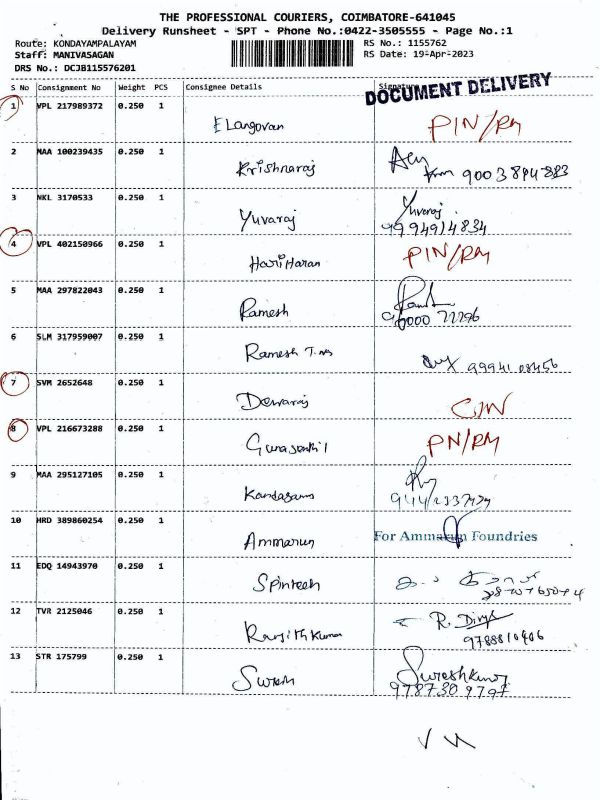 THE PROFESSIONAL COURIERS, COIMBATORE-641045
Delivery Runsheet - SPT - Phone No.:0422-3505555 - Page No.:1
Route: KONDAYAMPALAYAM
RS No.: 1155762
Staff: MANIVASAGAN
RS Date: 19-Apr-2023
DRS No.: DCJB115576201
S No Consignment No Weight PCS Consignee Details Signature
DOCUMENT DELIVERY
1 VPL 217989372 0.250 1
Elangovan PIN/RM
2 MAA 100239435 0.250 1
Krishnaraj
3 NKL 3170533 0.250 1
Yuvaraj Yuvaraj
9994914834
4 VPL 402150966 0.250 1
HariHaran PIN/RM
5 MAA 297822043 0.250 1
Ramesh
6 SLM 317959007 0.250 1
Ramesh
7 SVM 2652648 0.250 1
Devaraj
8 VPL 216673288 0.250 1
PN/RM
9 MAA 295127105 0.250 1
10 HRD 389860254 0.250 1
Ammarun For Ammarun Foundries
11 EDQ 14943970 0.250 1
Spintech
12 TVR 2125046 0.250 1
Ranjithkumar R. Divya
9788810406
13 STR 175799 0.250 1
Suresh Sureshkumar
9787309797